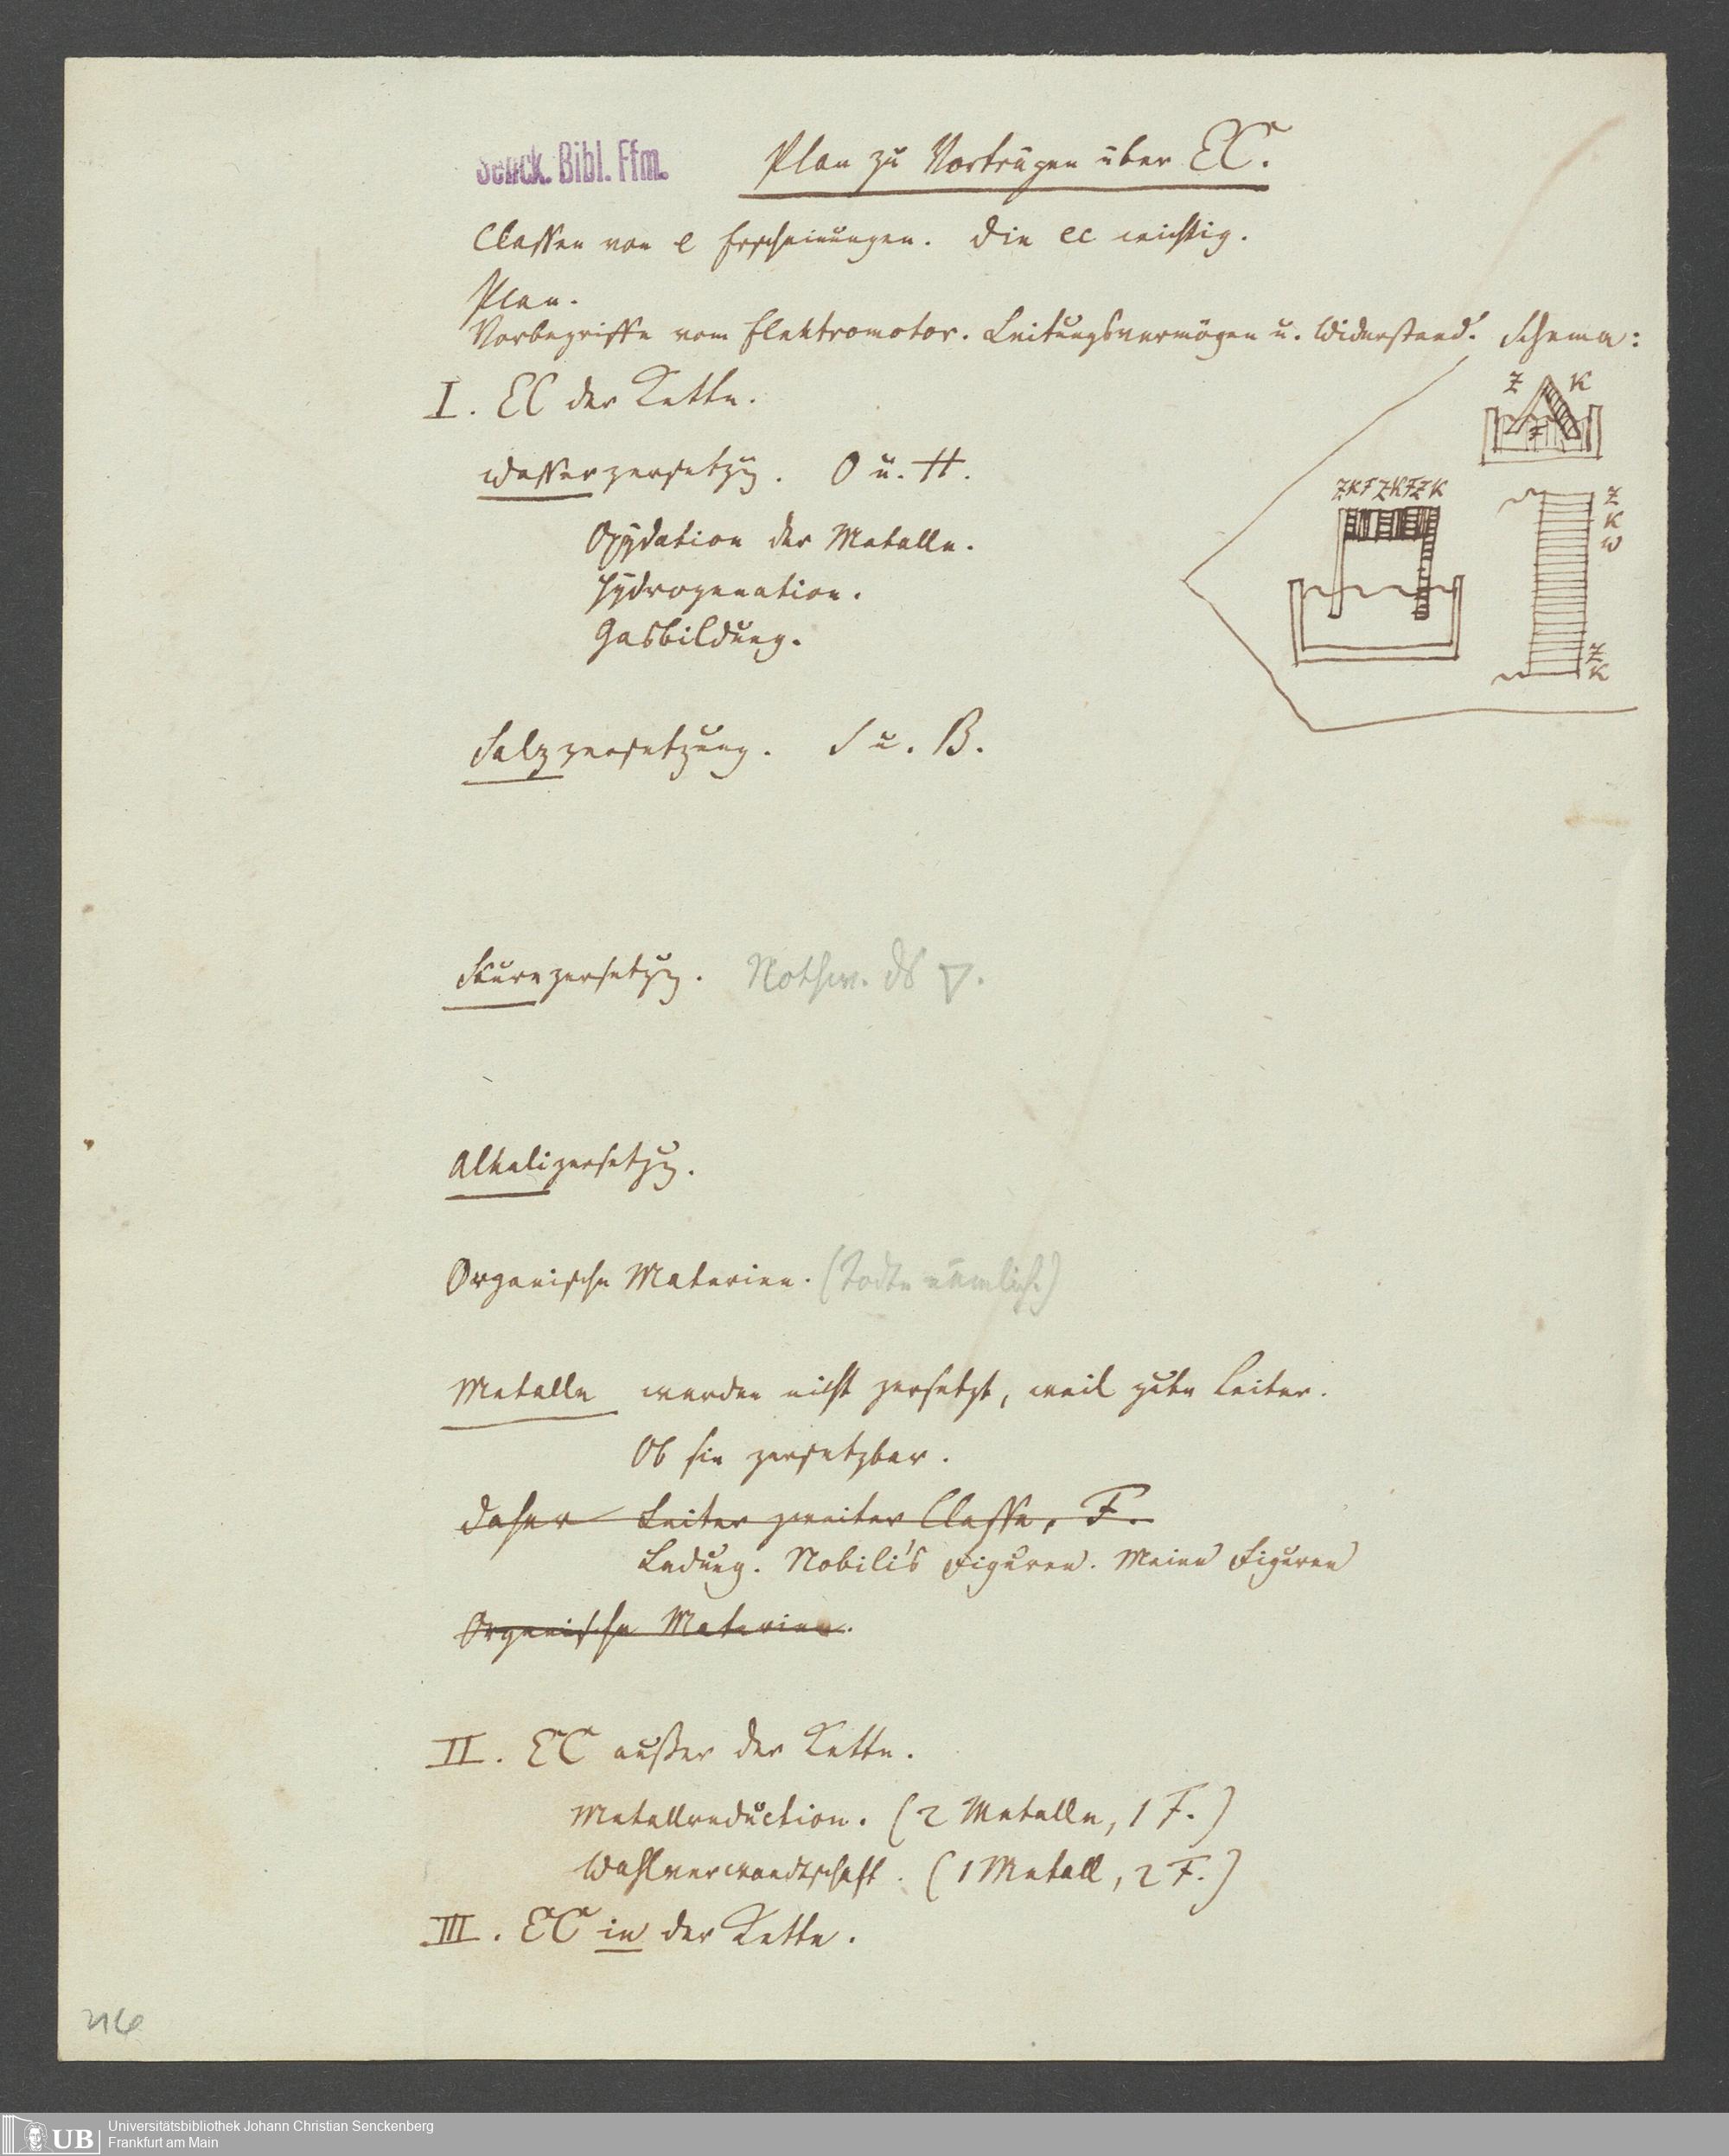 Senck. Bibl. Ffm.
Plan zu Vorträgen über EC.
Classen von e Erscheinungen. Die ec wichtig.
Plan.
Vorbegriffe vom Elektromotor. Leitungsvermögen u. Widerstand. Schema:
I. EC der Kette.
Z K
F
Wasserzersetzg. O u. H.
Z K F Z K F Z K
Z
K
W
Oxydation der Metalle.
Hydrogenation.
Gasbildung.
Z
K
Salzzersetzung. S u. B.
Säurezersetzg. Nothw. ds ▽.
Alkalizersetzg.
Organische Materien. (Todte nämlich)
Metalle werden nicht zersetzt, weil gute Leiter.
Ob sie zersetzbar.
Daher Leiter zweiter Classe, F.
Ladung. Nobili's Figuren. Meine Figuren
Organische Materien.
II. EC außer der Kette.
Metallreduction. (2 Metalle, 1 F.)
Wahlverwandtschaft. (1 Metall, 2 F.)
III. EC in der Kette.
216
UB
Universitätsbibliothek Johann Christian Senckenberg
Frankfurt am Main